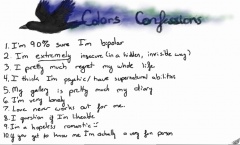 Colors Confessions
1. I'm 90% sure I'm bipolar
2. I'm extremely insecure (in a hidden, invisible way)
3. I pretty much regret my whole life
4. I think I'm psychic/ have supernatural abilities
5. My gallery is pretty much my diary
6. I'm very lonely
7. Love never works out for me.
8. I question if I'm likeable
9. I'm a hopeless romantic
10. If you get to know me I'm actually a very fun person